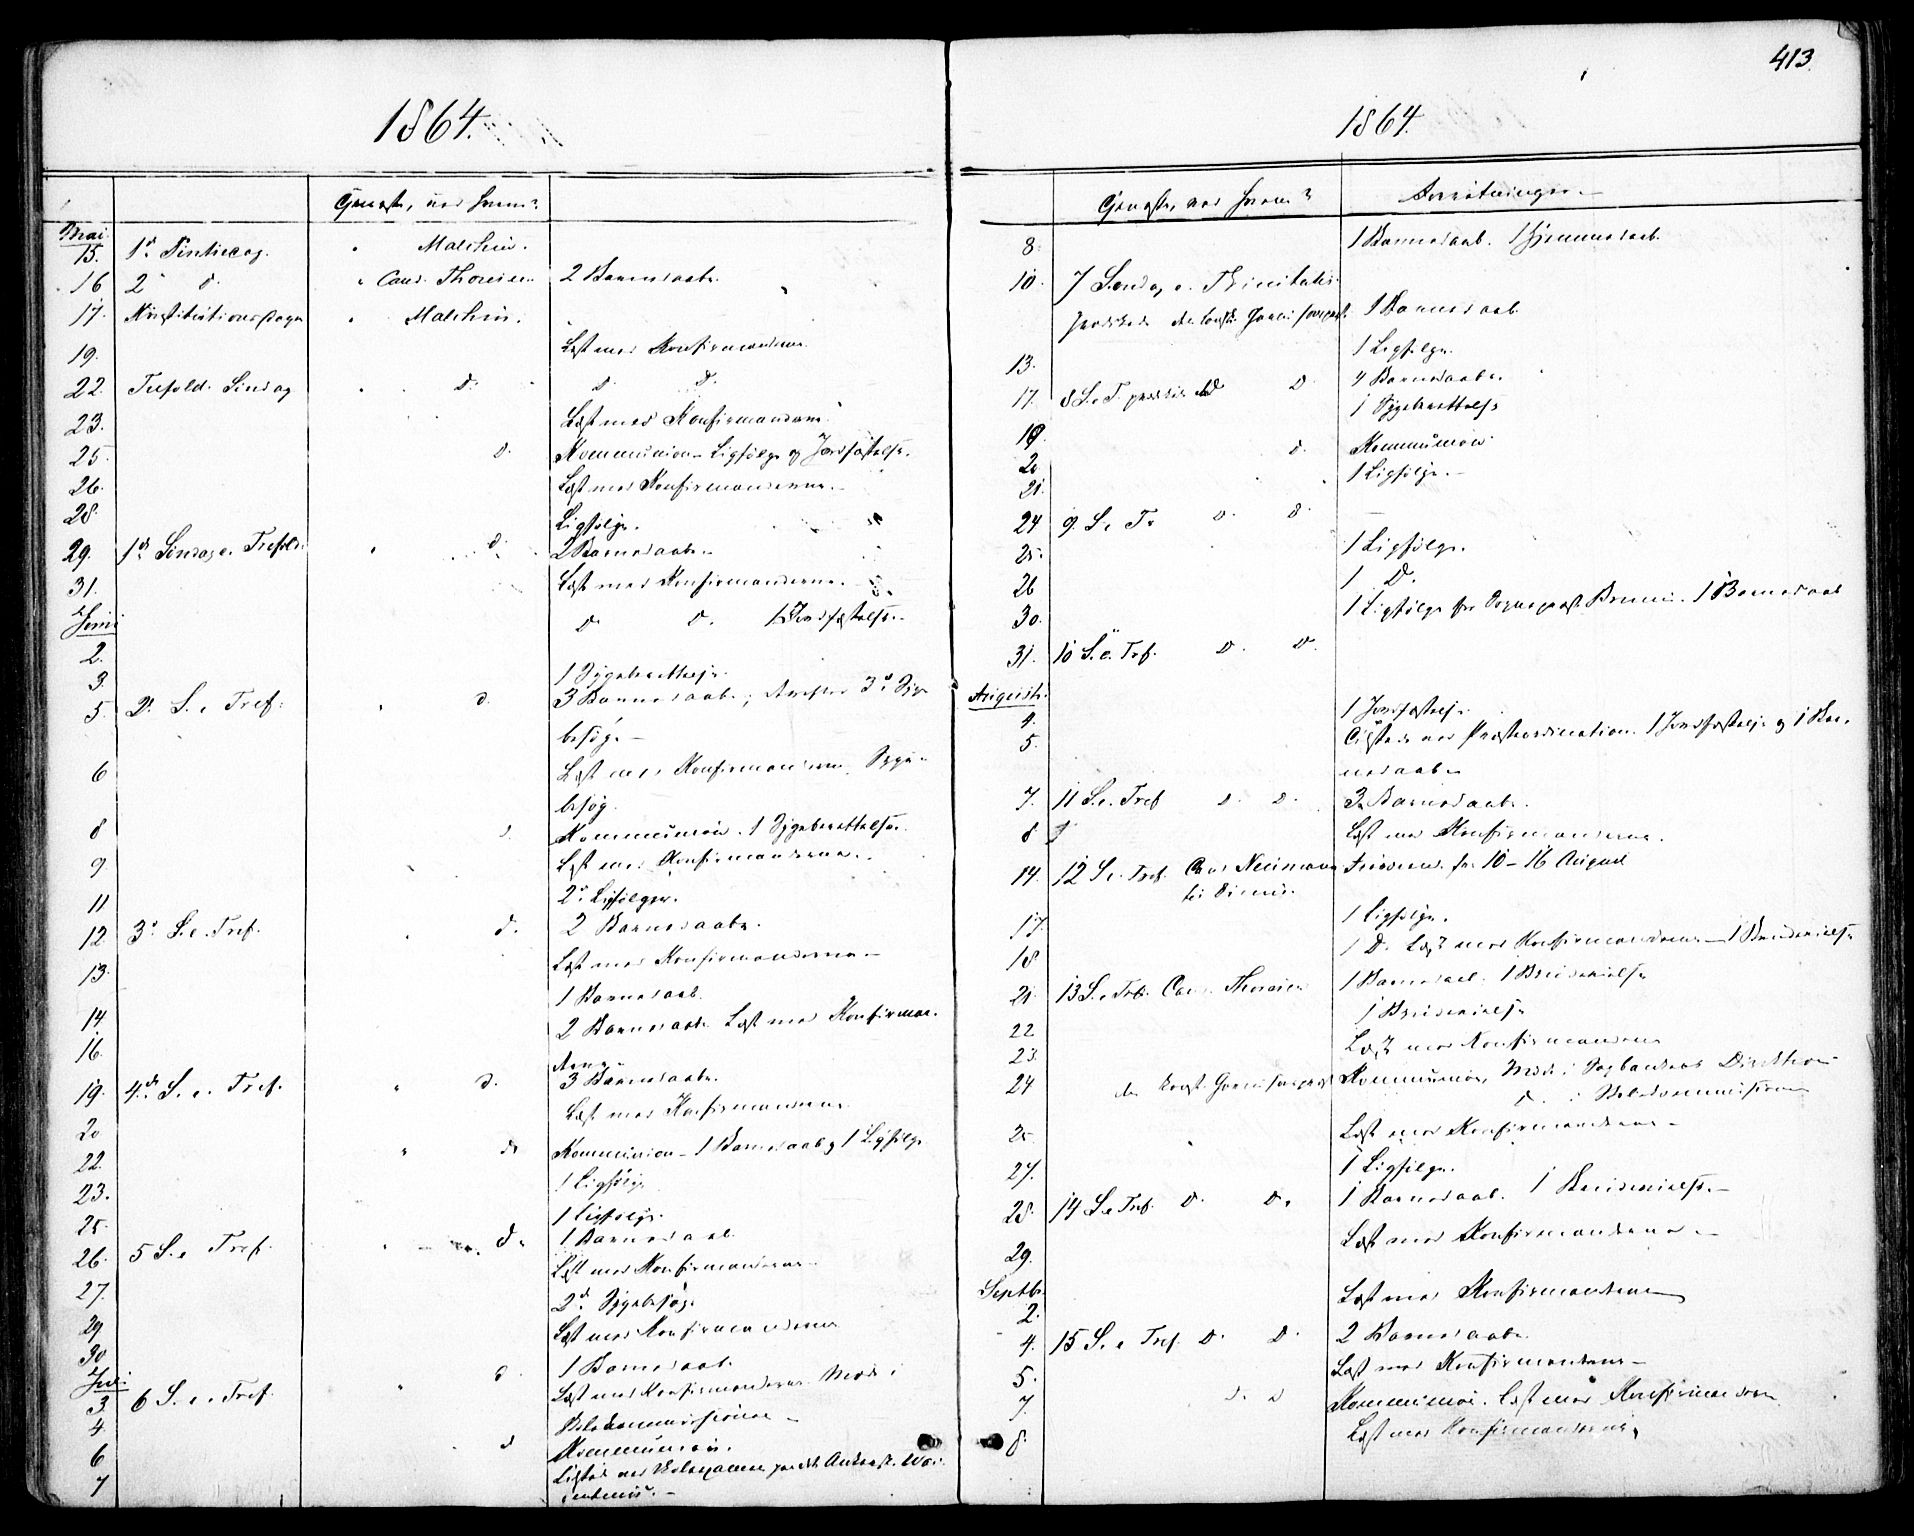 413
1864.
Mai
15. 1ste Pintsedag. " Malthin.
16 2 d. " Cand. Thoresen 2 Barnedaabe.
17. Konstitutionsdagen " Malthin.
19. Læst med Konfirmanderne.
22. Trefold. Søndag d. d. d.
23. Læst med Konfirmanderne.
25. d. Kommunion - Ligfølge og Jordfæstelse.
26. Læst med Konfirmanderne.
28. Ligfølge.
29. 1ste Søndag e. Trefold. " d. 2 Barnedaabe.
31. Læst med Konfirmanderne.
Juni
2. d. d. 1 Jordfæstelse.
3. 1 Sygeberettelse.
5. 2. S. e. Tref. " d. 3 Barnedaabe; 3de Syge
besøge -
6 Læst med Konfirmanderne. Syge-
besøg.
8 d. Kommunion. 1 Sygeberettelse.
9. Læst med Konfirmanderne.
11 2de Ligfølger.
12 3de S. e. Tref. " d. 2 Barnedaabe.
13. Læst med Konfirmanderne -
14 1 Barnedaab.
16. 2 Barnedaabe Læst med Konfirman-
derne -
19. 4de S. e. Tref. " d. 3 Barnedaabe.
20 Læst med Konfirmanderne
22. " d. Kommunion - 1 Barnedaab og 1 Ligfølge
23. 1 Ligfølge
25. 1 Ligfølge.
26. 5 S. e Tref. " d. 1 Barnedaab.
27. Læst med Konfirmanderne.
29 2de Sygebesøg.
30 Læst med Konfirmanderne
Juli
3. 6 S. e. Tref. " d. 1 Barnedaab.
4 Læst med Konfirmanderne. Møde i
Skolekommissionen -
6 d Kommunion.
7
1864.
Forretninger -
8. 1 Barnedaab. 1 Hjemmedaab.
10. 7 Søndag e. Trinitatis. 1 Barnedaab
13. 1 Ligfølge.
17. 8 S. e T. d 4 Barnedaabe.
19. 1 Sygeberettelse
20 d. Kommunion
21. 1 Ligfølge. -
24 9. S. e Tr d. d.
25. 1 Ligfølge.
26 1 D.
30. 1 Ligfølge for Sogneprest Bruun. 1 Barnedaab
31. 10 S. e. Tref. d. d.
August.
4. 1 Jordfæstelse
5. Præsteordination. 1 Jordfæstelse og 1 Bar-
nedaab -
7. 11 S. e. Tref d. d. 3 Barnedaabe.
8 Læst med Konfirmanderne.
14. 12 S. e. Tref. Cand. Neumann fra 10 - 16 August
17. 1 Ligfølge.
18 1 D. Læst med Konfirmanderne - 1 Brudevielse
21. 13 S. e Tref. Cand. Thoresen 1 Barnedaab. 1 Brudevielse
22 1 Brudevielse
23. Læst med Konfirmanderne
24 Kommunion, Møde i Sogbankens Direktion
d. i Skolekommissionen
25. Læst med Konfirmanderne -
27. 1 Ligfølge.
28. 14 S. e Tref. d. d. 1 Barnedaab. 1 Brudevielse. -
29. Læst med Konfirmanderne -
Septbr.
2. Læst med Konfirmanderne
4. 15 S. e Tref. d. d. 2 Barnedaabe.
5. Læst med Konfirmanderne -
7. d. d Kommunion. Læst med Konfirmanderne
8. Læst med Konfirmanderne.